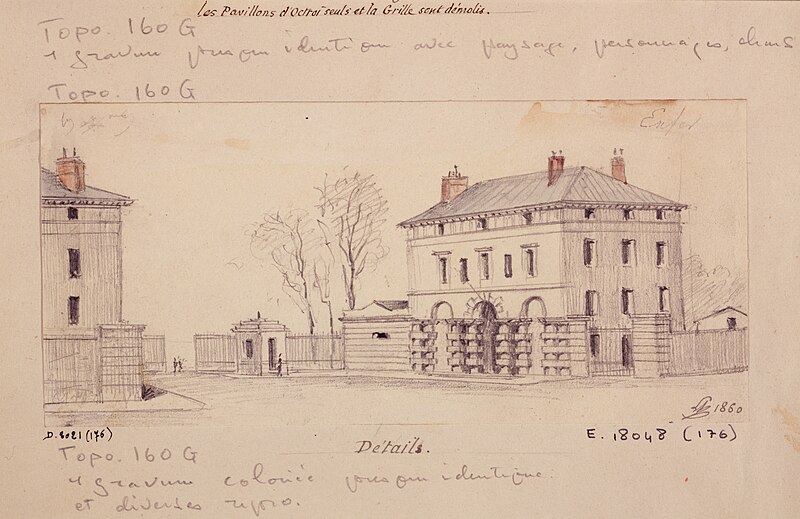 les Pavillons d'Octroi seuls et la Grille sont démolis.
Topo. 160 G
1 gravure presque identique avec paysage, personnages, chars
Topo. 160 G
Enfer
1860
D. 8021 (176)
E. 18048 (176)
Détails.
Topo. 160 G
1 gravure coloriée presque identique
et diverses repro.